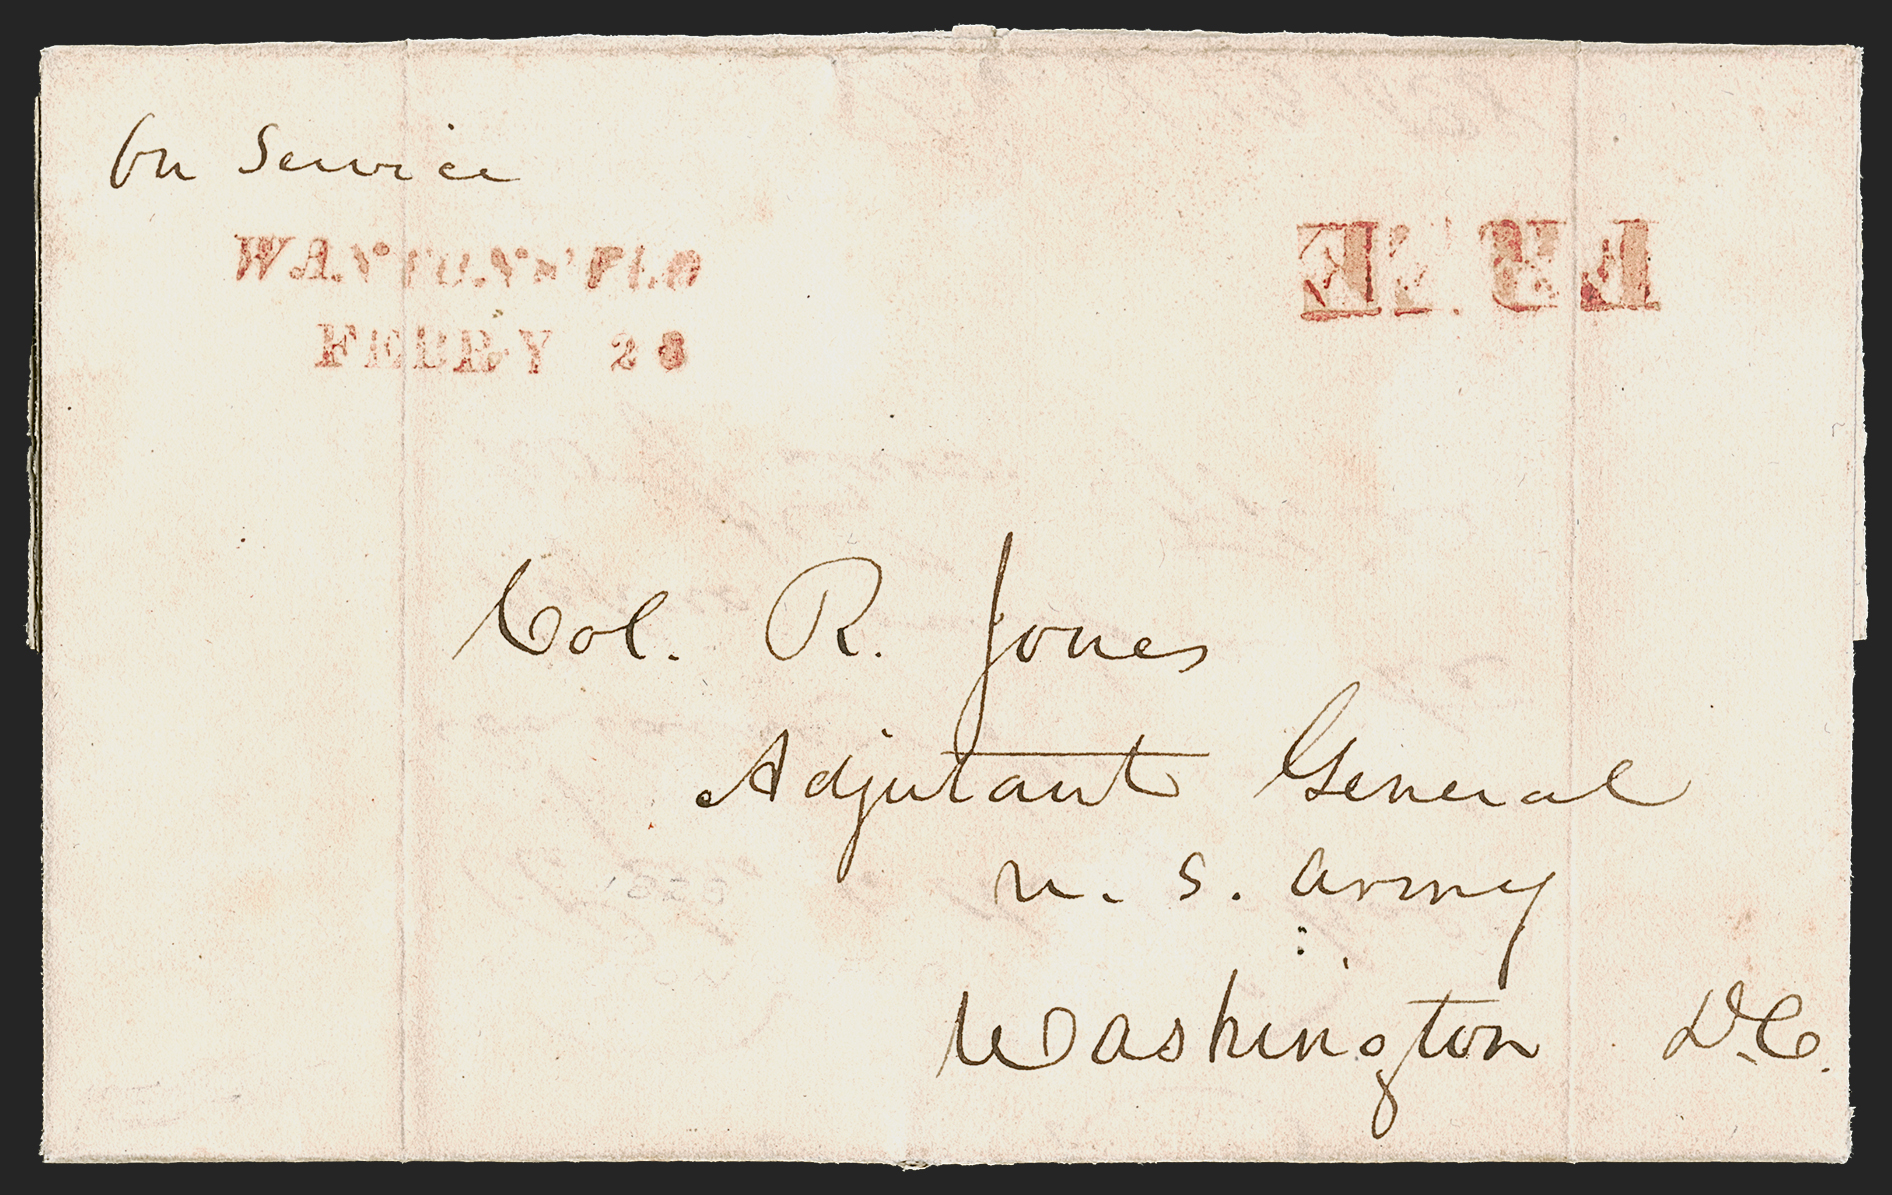 On Service
WANTONS' FLO
FEBRY 28
FREE
Col. R. Jones
Adjutant General
U. S. Army
Washington D.C.